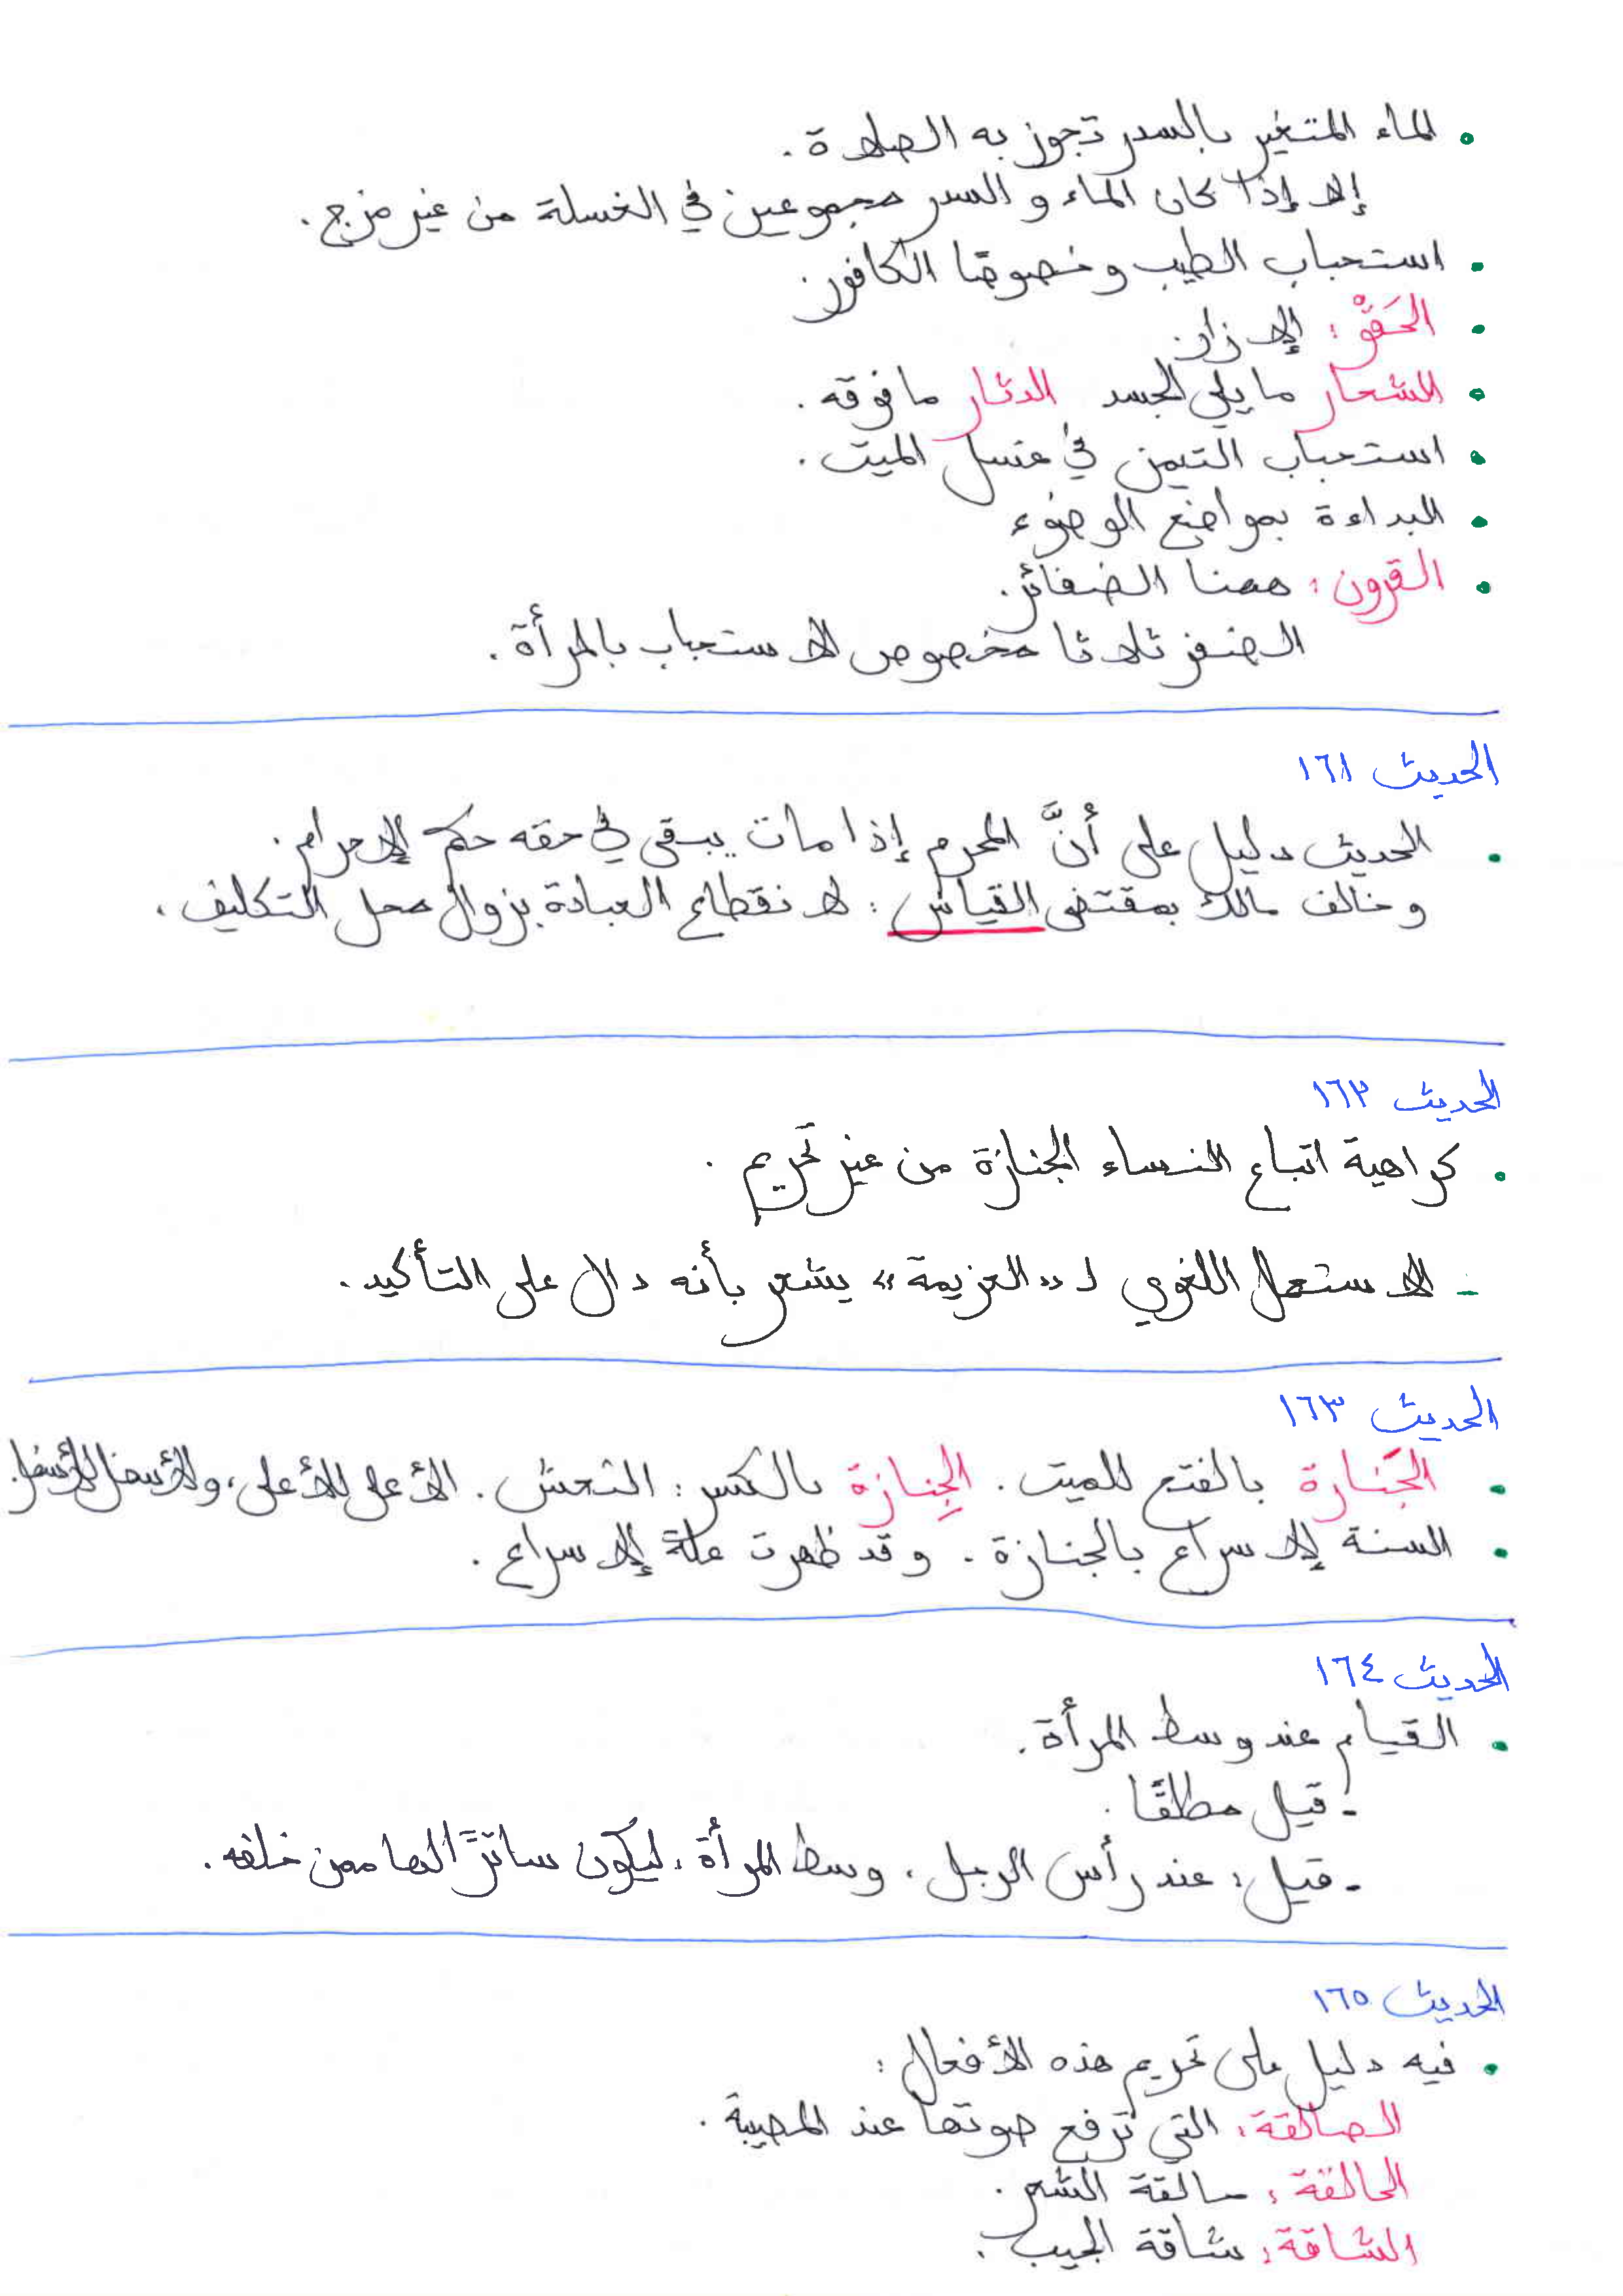 • الماء المتغير بالسدر تجوز به الصلاة.
إلا إذا كان الماء و السدر مجموعين في الغسلة من غير مزج.
• استحباب الطيب وخصوصًا الكافور.
• الحَقْو: الإزار.
• الشعار ما يلي الجسد الدثار ما فوقه.
• استحباب التيمن في غسل الميت.
• البداءة بمواضع الوضوء
• القرون: ههنا الضفائر.
الضفر ثلاثا مخصوص الاستحباب بالمرأة.
الحديث ١٦١
• الحديث دليل على أنَّ المحرم إذا مات يبقى في حقه حكم الإحرام.
و خالف مالك بمقتضى القياس: لانقطاع العبادة بزوال محل التكليف.
الحديث ١٦٢
• كراهية اتباع النساء الجنازة من غير تحريم.
- الاستعمال اللغوي لـ «العزيمة» يشعر بأنه دال على التأكيد.
الحديث ١٦٣
• الجَنازة بالفتح للميت. الجِنازة بالكسر: النعش. الأعلى للأعلى، والأسفل للأسفل.
• السنة الإسراع بالجنازة. وقد ظهرت علة الإسراع.
الحديث ١٦٤
• القيام عند وسط المرأة.
- قيل مطلقًا.
- قيل: عند رأس الرجل، وسط المرأة، ليكون ساترًا لها ممن خلفه.
الحديث ١٦٥
• فيه دليل على تحريم هذه الأفعال:
الصالقة: التي ترفع صوتها عند المصيبة.
الحالقة: حالقة الشعر.
الشاقة: شاقة الجيب.